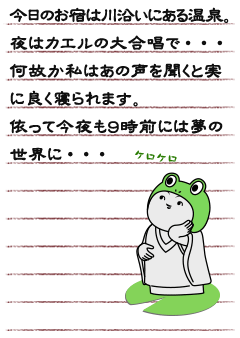 今日のお宿は川沿いにある温泉。
夜はカエルの大合唱で・・・
何故か私はあの声を聞くと実
に良く寝られます。
依って今夜も9時前には夢の
世界に・・・
ケロケロ